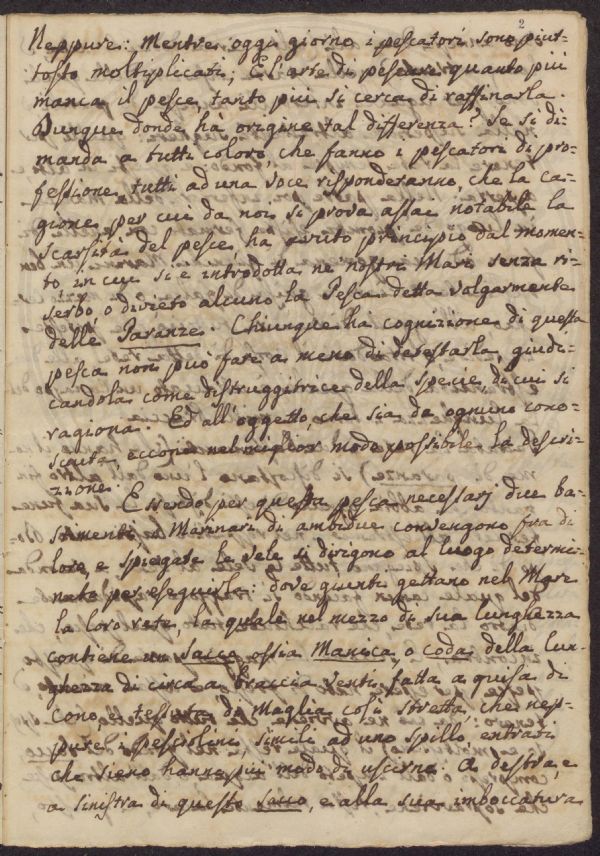 2
Neppure: Mentre oggi giorno i pescatori sono piut-
tosto moltiplicati; E l'arte di pescare quanto più
manca il pesce, tanto più si cerca di raffinarla.
Dunque donde hà origine tal differenza? Se si di-
manda a tutti coloro, che fanno i pescatori di pro-
fessione, tutti ad una voce risponderanno, che la ca-
gione, per cui da noi si prova assai notabile la
scarsità del pesce, ha avuto principio dal momen-
to, in cui si è introdotta ne' nostri Mari senza ri-
serbo, o divieto alcuno la Pesca detta volgarmente
delle Paranze. Chiunque ha cognizione di questa
pesca non può fare a meno di detestarla, giudi-
candola come distruggitrice della specie, di cui si
ragiona. Ed all'oggetto, che sia da ognuno cono-
sciuta, eccone nel miglior modo possibile la descri-
zione.
Essendo per questa pesca necessarj due ba-
stimenti, i Marinari di ambidue convengono fra di
loro, e spiegate le vele si dirigono al luogo determi-
nato per eseguirla: dove giunti gettano nel Mare
la loro rete, la quale nel mezzo di sua lunghezza
contiene un Sacco ossia Manica, o coda della lun-
ghezza di circa a braccia venti fatta a guisa di
Cono, tessuta di Maglia così stretta, che nep-
pure i pesciolini simili ad uno spillo, entrati
che sieno hanno più modo di uscirne. A destra, e
a sinistra di questo sacco, e alla sua imboccatura